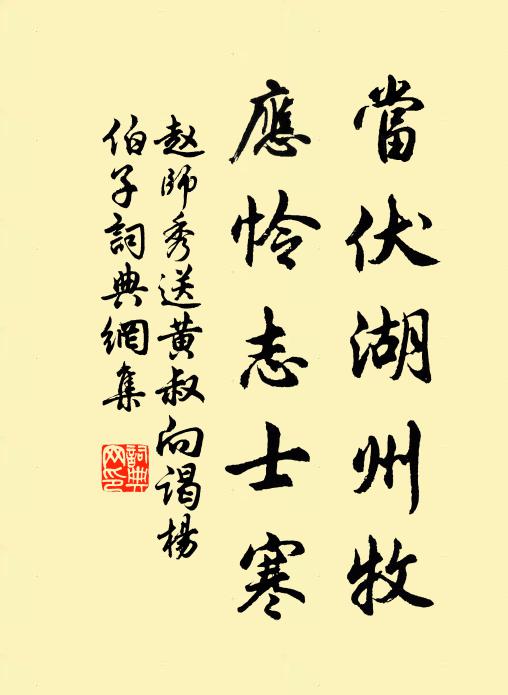 當伏湖州牧
應怜志士寒
赵師秀送黄叔向谒楊
伯子詞典網集
詞典
网印